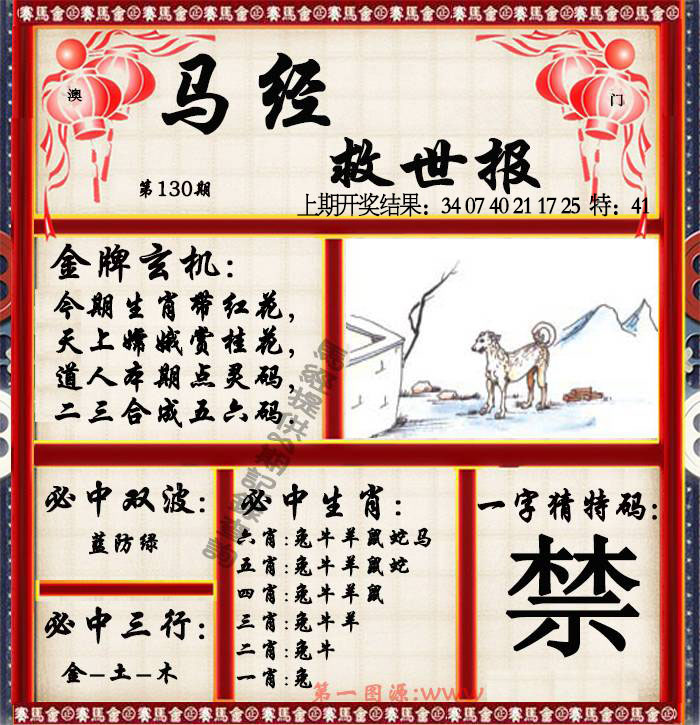 賽馬會 賽馬會 賽馬會 賽馬會 賽馬會 賽馬會 賽馬會 賽馬會
澳
门
马经
救世报
第130期
上期开奖结果：34 07 40 21 17 25 特：41
金牌玄机：
今期生肖带红花，
天上嫦娥赏桂花，
道人本期点灵码，
二三合成五六码.
必中双波：
蓝防绿
必中三行：
金–土–木
必中生肖：
六肖：兔牛羊鼠蛇马
五肖：兔牛羊鼠蛇
四肖：兔牛羊鼠
三肖：兔牛羊
二肖：兔牛
一肖：兔
一字猜特码：
禁
第一图源:www